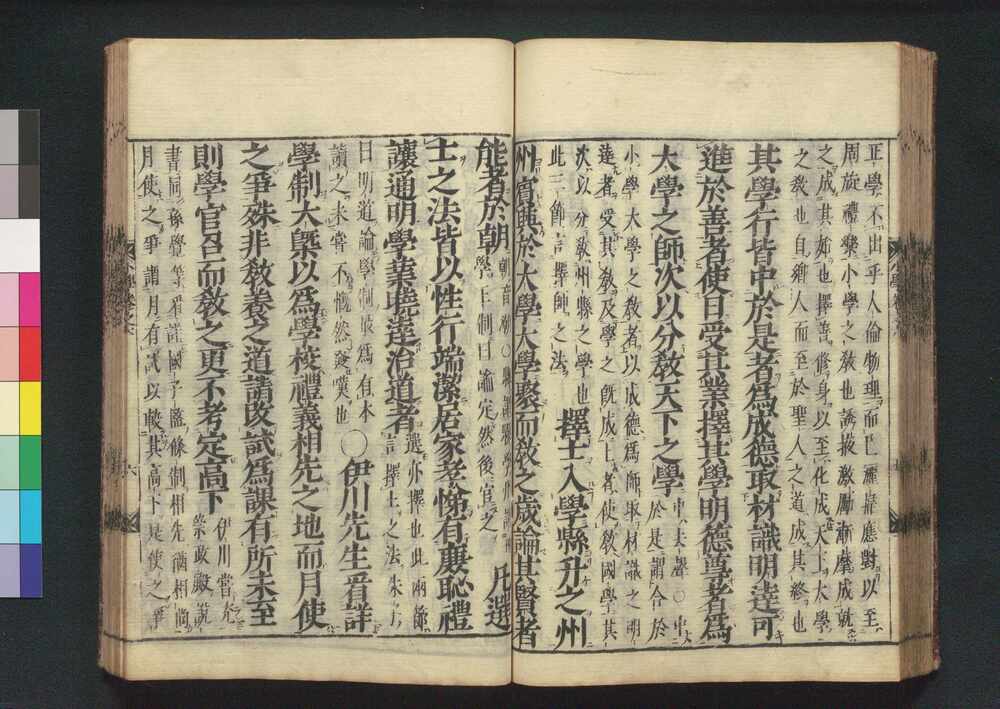 正學不出乎人倫物理而已灑掃應對以至
周旋禮樂小學之敎也誘掖激勵漸摩成就
之成其始也擇善修身以至化成天下大學
之敎也自鄉人而至於聖人之道成其終也
其學行皆中於是者爲成德取材識明達可
進於善者使日受其業擇其學明德尊者爲
大學之師次以分敎天下之學
中去聲○中
於是謂合於
小學大學之敎者以成德爲師取材識之明
達者受其敎及學之旣成上者使敎國學其
次以分敎州縣之學也
此三節言擇師之法
擇士入學縣升之州
州賓興於大學大學聚而敎之歲論其賢者
能者於朝
朝音潮○
學王制曰論定然後官之
凡選
士之法皆以性行端潔居家孝悌有廉恥禮
讓通明學業曉達治道者
選亦擇也此兩節
言擇士之法朱子
曰明道論學制最爲有本
讀之未嘗不慨然發嘆也
○伊川先生看詳
學制大槩以爲學校禮義相先之地而月使
之爭殊非敎養之道請改試爲課有所未至
則學官召而敎之更不考定高下
伊川嘗充
崇政殿說
書同孫覺等看詳國子監條制相先猶相尚
月使之爭謂月有試以較其高下是使之爭
小學卷之六
六